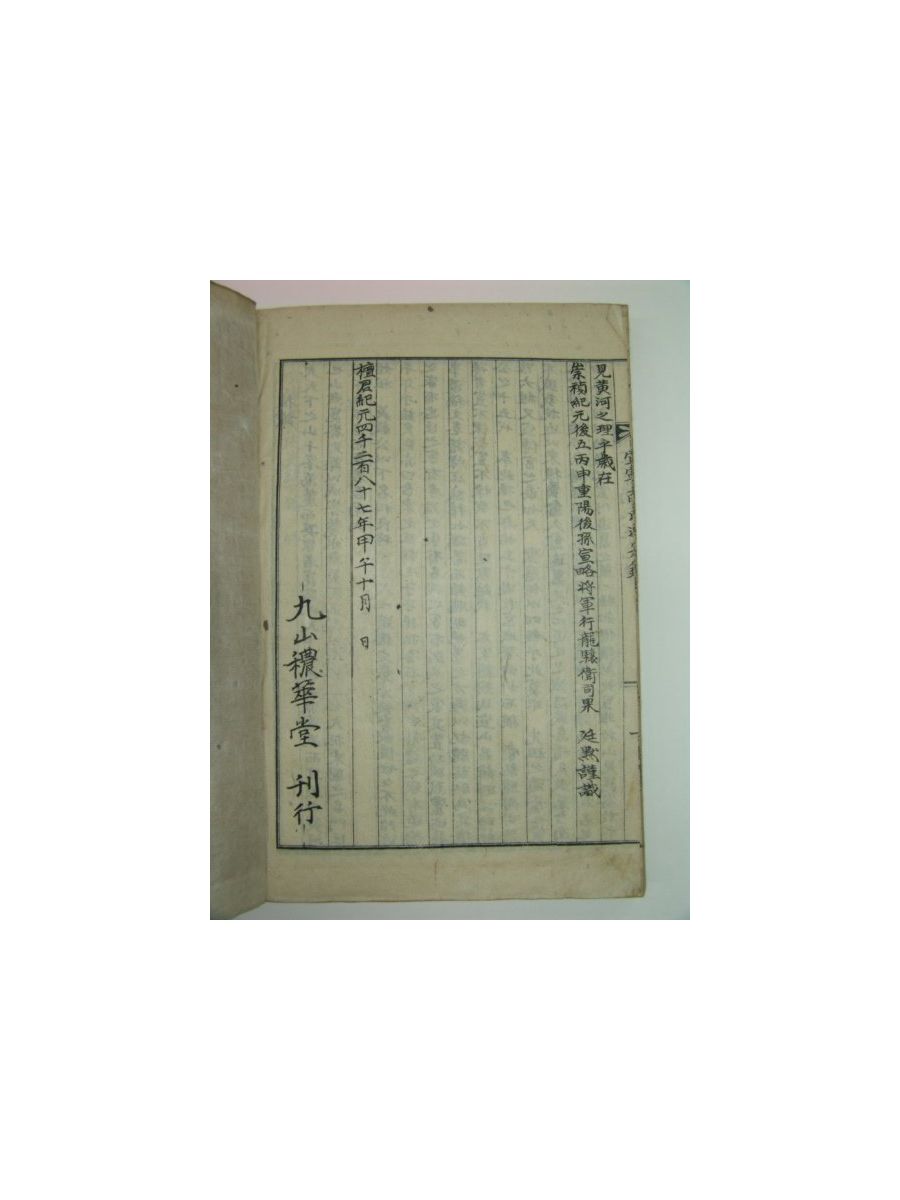 見黃河之理乎歲在
崇禎紀元後五丙申重陽後孫宣略將軍行龍驤衛司果 廷熙謹識
檀君紀元四千二百八十七年甲午十月 日
九山穠華堂 刊行